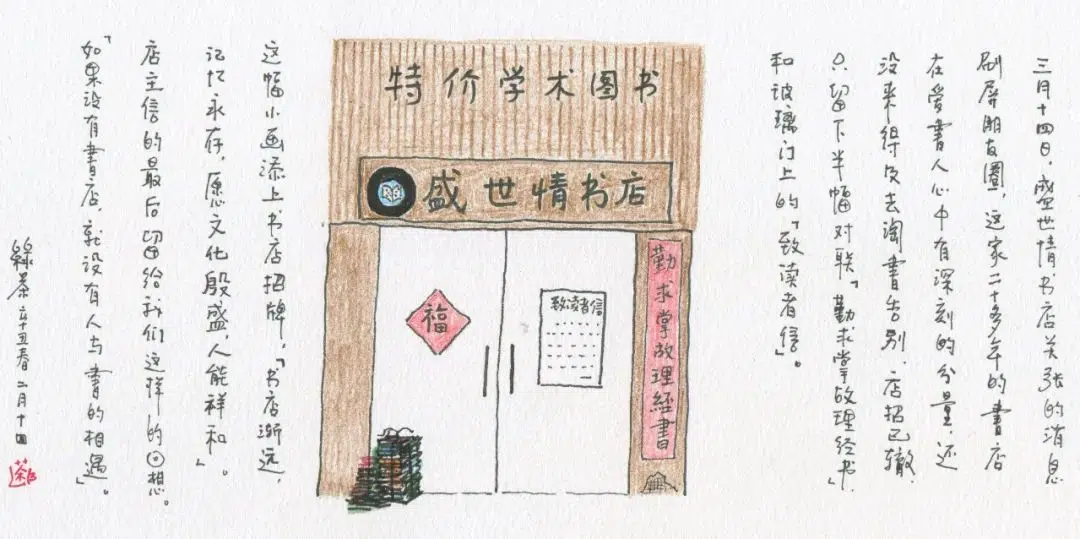 三月十四日，盛世情书店关张的消息
刷屏朋友圈，这家二十多年的書店
在爱書人心中有深刻的分量，还
没来得及去淘書告别，店招已撤，
只留下半幅对联「勤求掌故理经书」，
和玻璃门上的「致读者信」。
特价学术图书
盛世情书店
福
致读者信
勤求掌故理經書
这幅小画添上书店招牌，「书店渐远，
记忆永存，愿文化殷盛，人能祥和」。
店主信的最后留给我们这样的回想。
「如果没有書店，就没有人与書的相遇」。
綠茶 十五春二月十四
茶